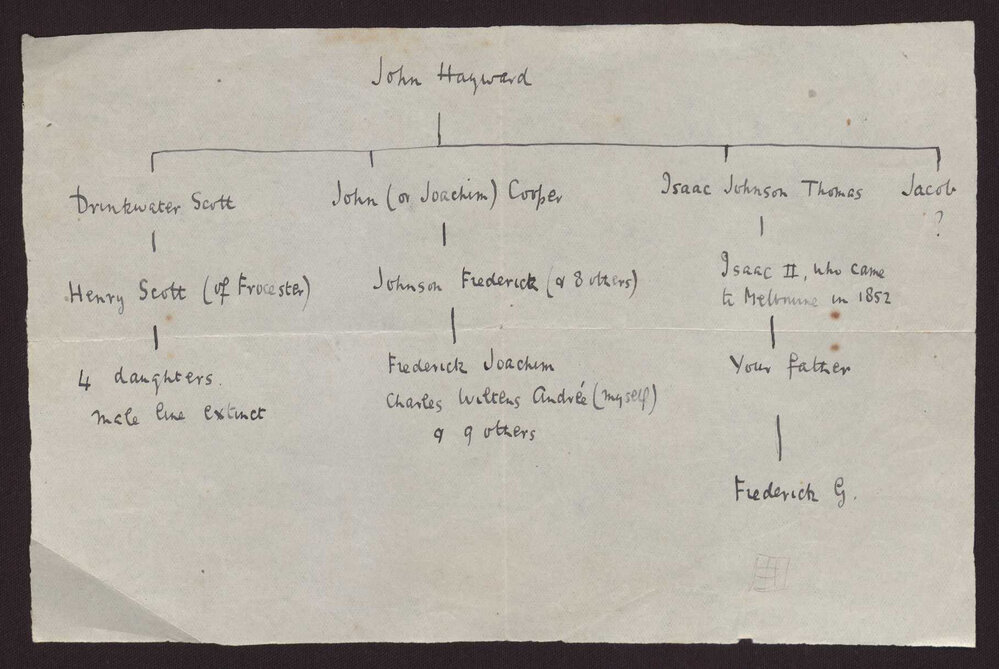 John Hayward
Drinkwater Scott
John (or Joachim) Cooper
Isaac Johnson Thomas
Jacob
?
Henry Scott (of Frocester)
Johnson Frederick (& 8 others)
Isaac II, who came
to Melbourne in 1852
4 daughters.
male line extinct
Frederick Joachim
Charles Wiltens Andrée (myself)
& 9 others
Your father
Frederick G.